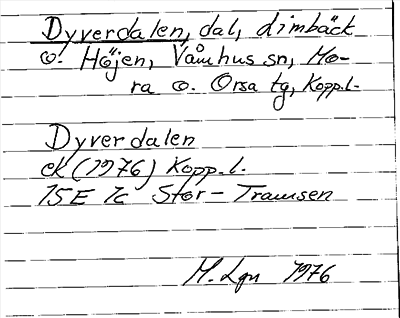 Dyverdalen, dal, dimbäck
o. Höjen, Våmhus sn, Mo-
ra o. Orsa tg, Kopp.l.
Dyverdalen
ek (1976) Kopp.l.
15E 7c Stor-Tramsen
M. Lgn 1976